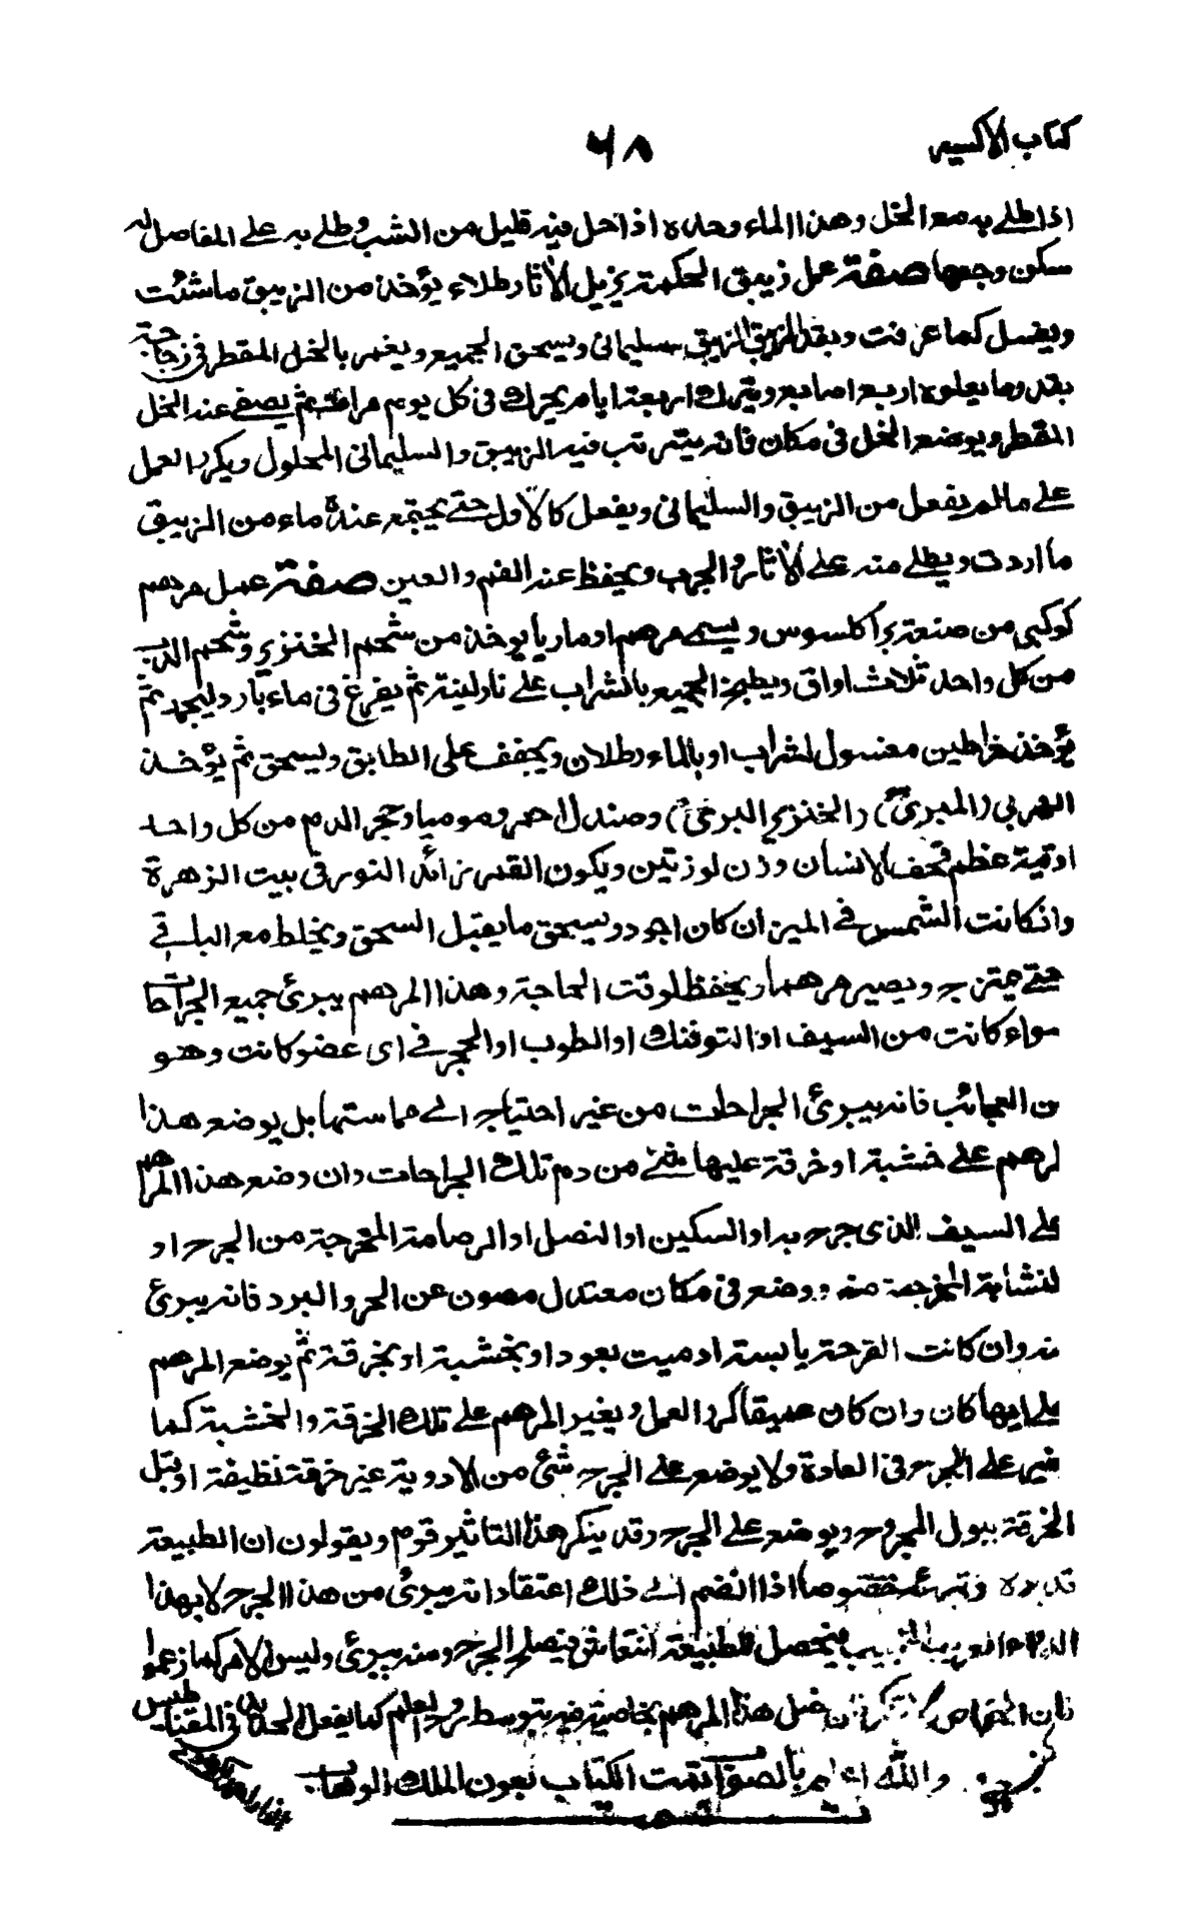 كتاب الاكسير
٦٨
اذا طلي به مع الخل وهذا الماء وحده اذا حل فيه قليل من الشب وطلي به على المفاصل
سكن وجعها صفة عمل زيبق الحكمة يزيل الاثار طلاء يؤخذ من الزيبق ماشئت
ويغسل كما عرفت وبقدر الزيبق سليمانى ويسحق الجميع ويغمر بالخل المقطر فى زجاجة
بقدر ما يعلوه اربع اصابع ويترك اربعة ايام يحرك فى كل يوم مرات ثم يصفى عنه الخل
المقطر ويوضع الخل فى مكان فانه يترتب فيه الزيبق والسليمانى المحلول ويكرر العمل
على مالم يفعل من الزيبق والسليمانى ويفعل كالاول حتى يجتمع عنده ماء من الزيبق
ما اردت ويطلى منه على الاثار والجرب ويحفظ عنه الفم والعين صفة عمل مرهم
كوكبى من صنعة براكلسوس ويسمى مرهم اوماريا يوخذ من شحم الخنزير وشحم الدب
من كل واحد ثلاث اواق ويطبخ الجميع بالشراب على نار لينة ثم يفرغ فى ماء بارد ليجمد ثم
يؤخذ خراطين مغسول لشراب او بالماء رطلان ويجفف على الطابق ويسحق ثم يؤخذ
البرى) (والخنزير البرى) وصندل احمر وموميا وحجر الدم من كل واحد
اوقية عظم قحف الانسان وزن لوزتين ويكون القمر زائد النور فى بيت الزهرة
وانكانت الشمس فى الميزان كان اجود ويسحق ما يقبل السحق ويخلط مع الباقى
حتى يمتزج ويصير مرهما ويحفظ لوقت الحاجة وهذا المرهم يبرئ جميع الجراحات
سواء كانت من السيف او التوفنك او الطوب او الحجر فى اى عضو كانت وهو
ن العجائب فانه يبرئ الجراحات من غير احتياج الى مماستها بل يوضع هذا
لرهم على خشبة او خرقة عليها شئ من دم تلك الجراحات وان وضع هذا المرهم
على السيف الذى جرح به او السكين او النصل او الرصاصة المخرجة من الجرح او
لنشابة المخرجة منه ووضع فى مكان معتدل مصون عن الحر والبرد فانه يبرئ
نه وان كانت القرحة يابسة ادميت بعود او بخشبة او بخرقة ثم يوضع المرهم
على ايها كان وان كان عميقا كرر العمل ويغير المرهم على تلك الخرقة والخشبة كما
غير على الجرح فى العادة ولا يوضع على الجرح شئ من الادوية غير خرقة نظيفة او تبل
الخرقة ببول المجروح ويوضع على الجرح وقد ينكر هذا التاثير قوم ويقولون ان الطبيعة
خصوصا اذا انضم الى ذلك اعتقاد انه يبرئ من هذا الجرح لا بهذا
فيحصل للطبيعة انتعاش فيصلح الجرح ومنه يبرئ وليس الامر كما زعموا
فعل هذا المرهم بخاصية فيه بتوسط روح العالم كما يفعل الحديد فى المقناطيس
والله اعلم بالصواب تمت الكتاب بعون الملك الوهاب
تمت